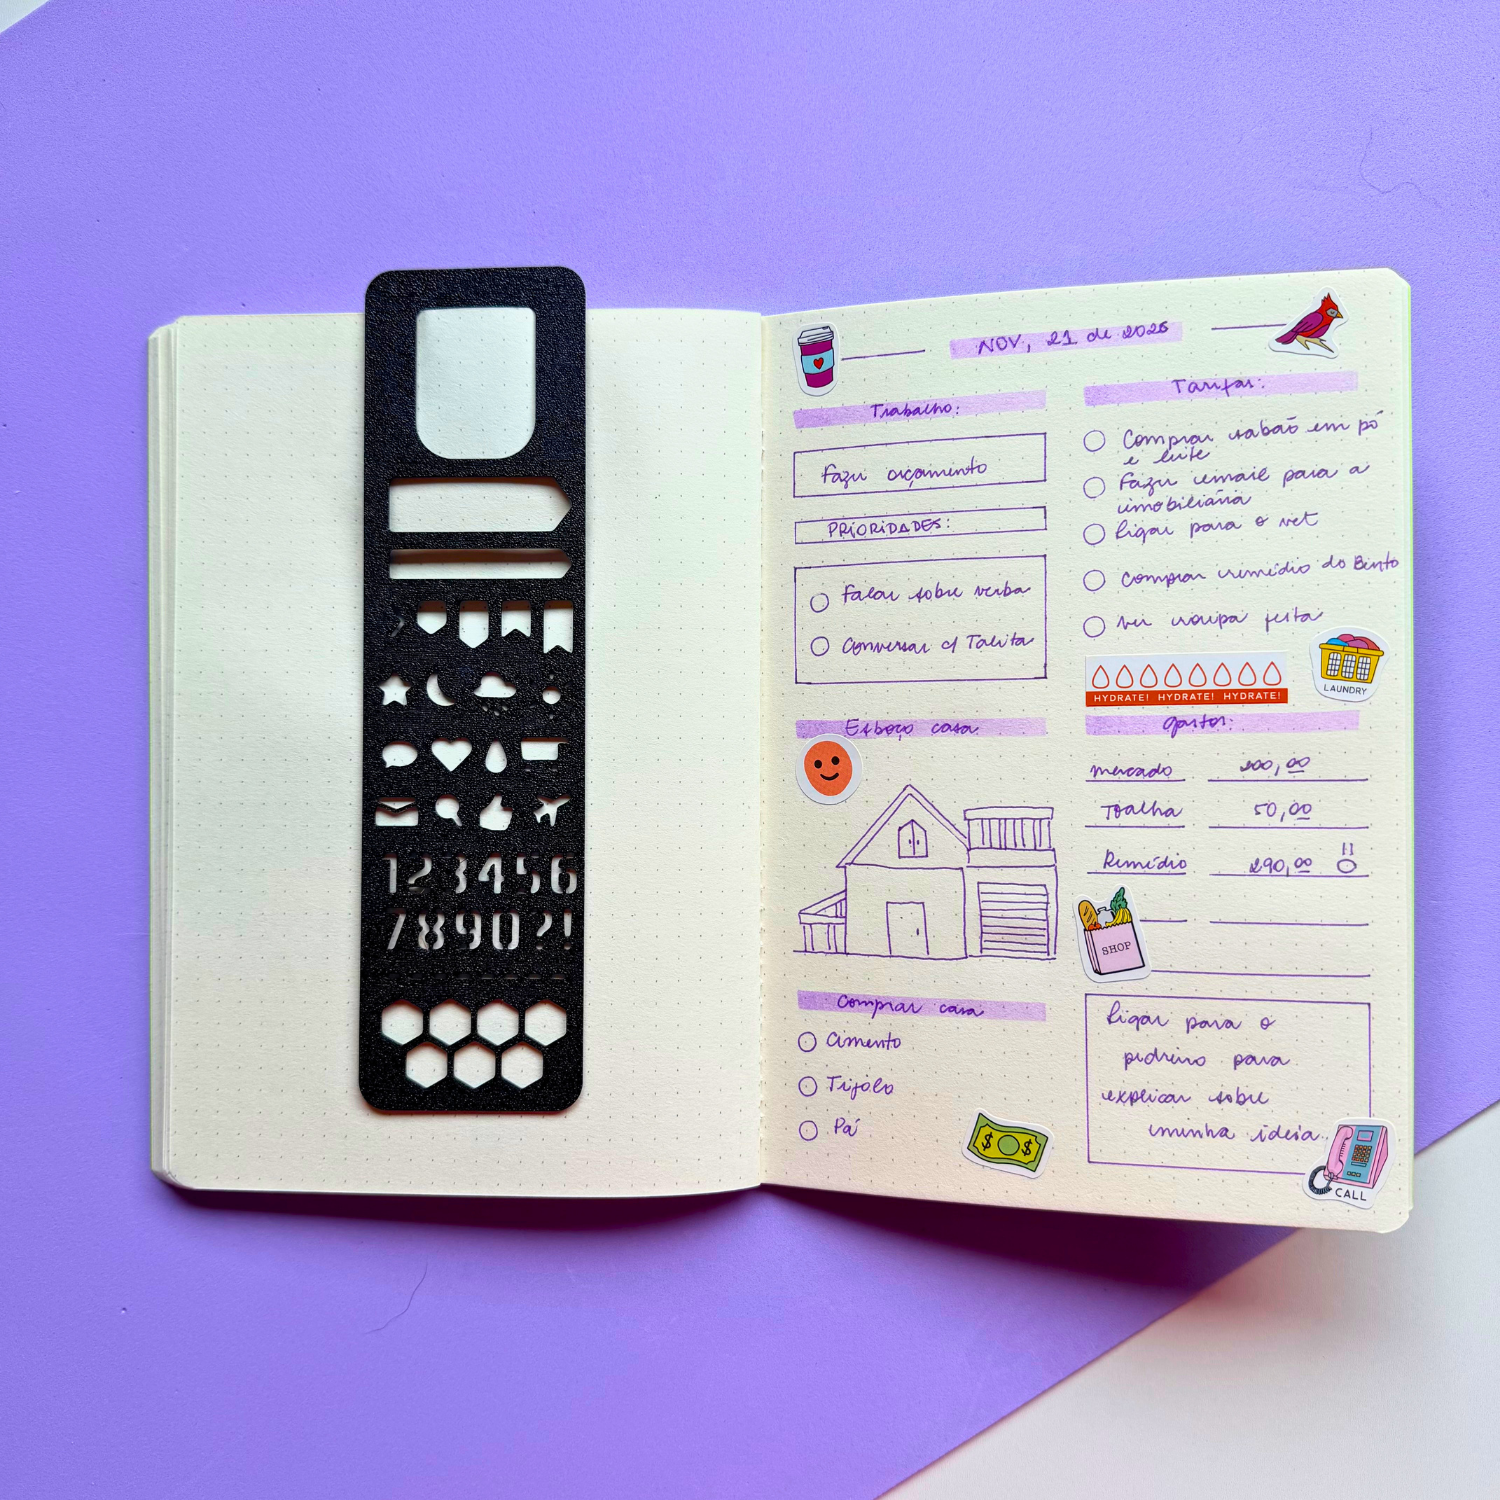 1 2 3 4 5 6
7 8 9 0 ? !
NOV, 21 de 2025
Trabalho:
Fazer orçamento
PRIORIDADES:
Falar sobre verba
Conversar c/ Talita
Esboço casa
Comprar casa
Cimento
Tijolo
Pá
Tarefas:
Comprar sabão em pó
e leite
Fazer email para a
imobiliária
Ligar para o vet
Comprar remédio do Bento
Ver roupa
HYDRATE! HYDRATE! HYDRATE!
LAUNDRY
gastos:
mercado 200,00
Toalha 50,00
Remédio 290,00 !!
SHOP
Ligar para o
pedreiro para
explicar sobre
minha ideia.
CALL